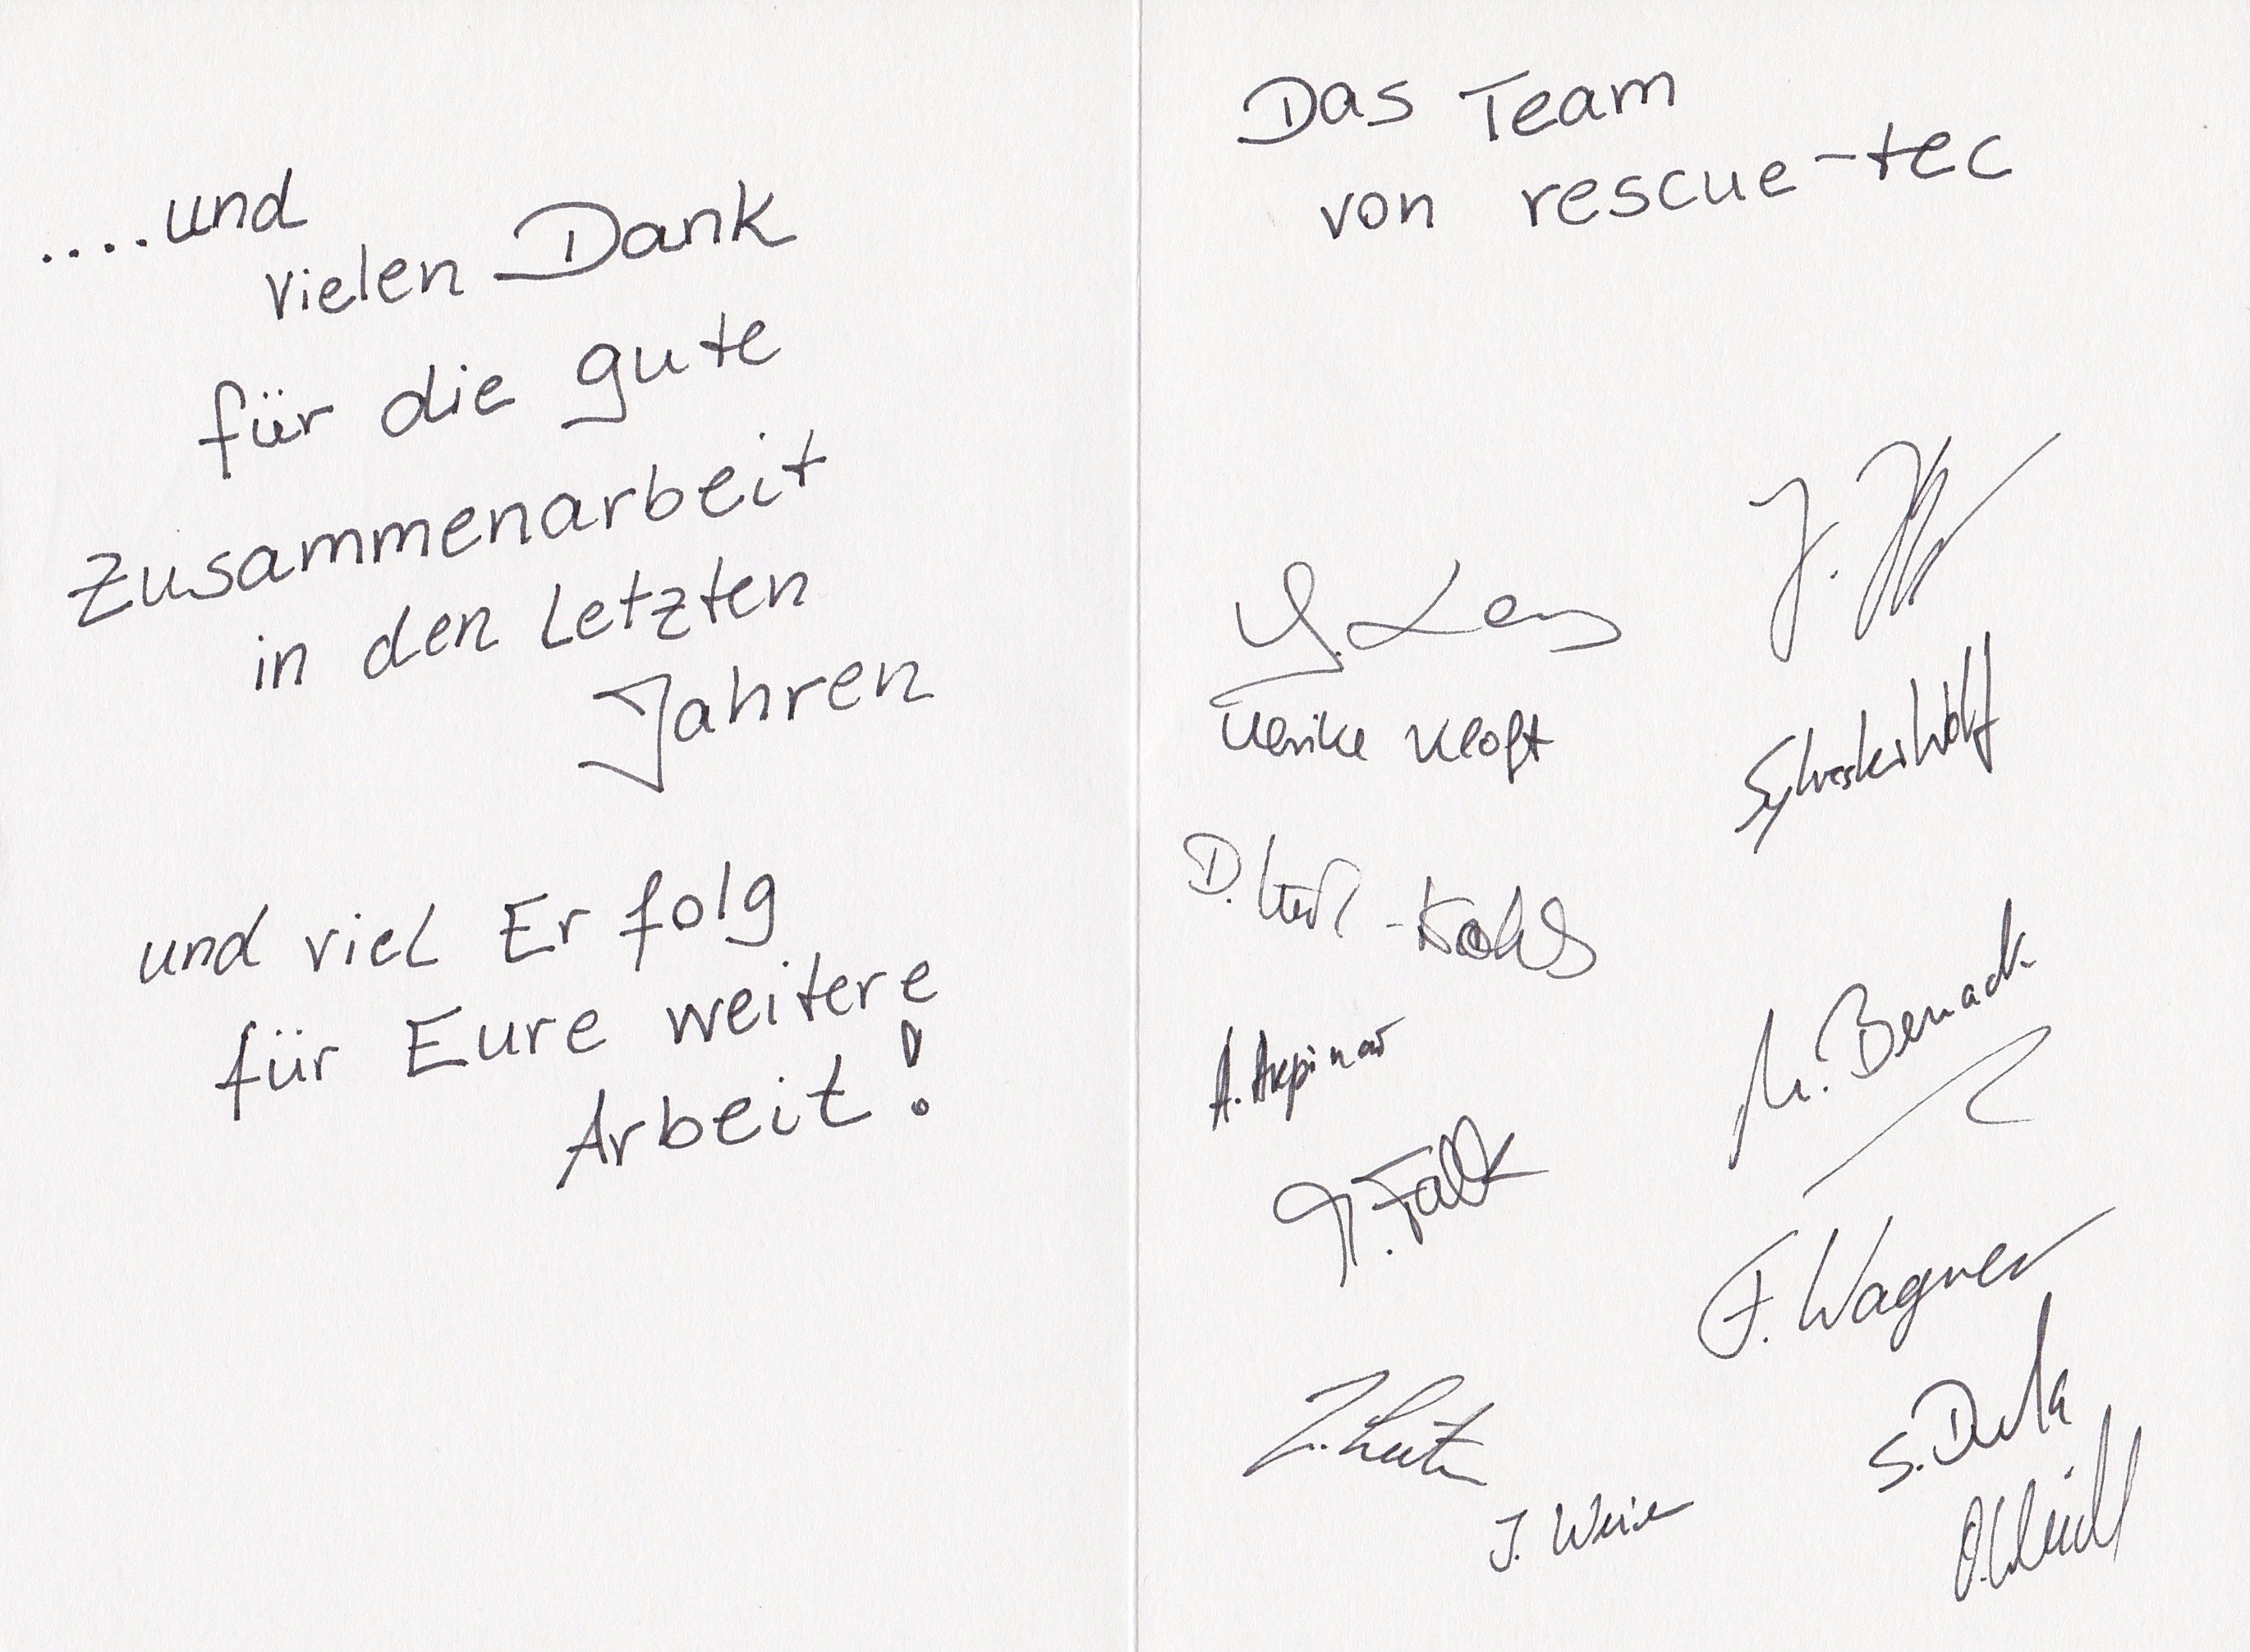 ....und
vielen Dank
für die gute
Zusammenarbeit
in den Letzten
Jahren
und viel Erfolg
für Eure weitere
Arbeit!
Das Team
von rescue-tec
Ulrike Kloft
Sylvester Wolf
D.
A. Akpinar
M. Benack
Falk
F. Wagner
J. Weier
S.